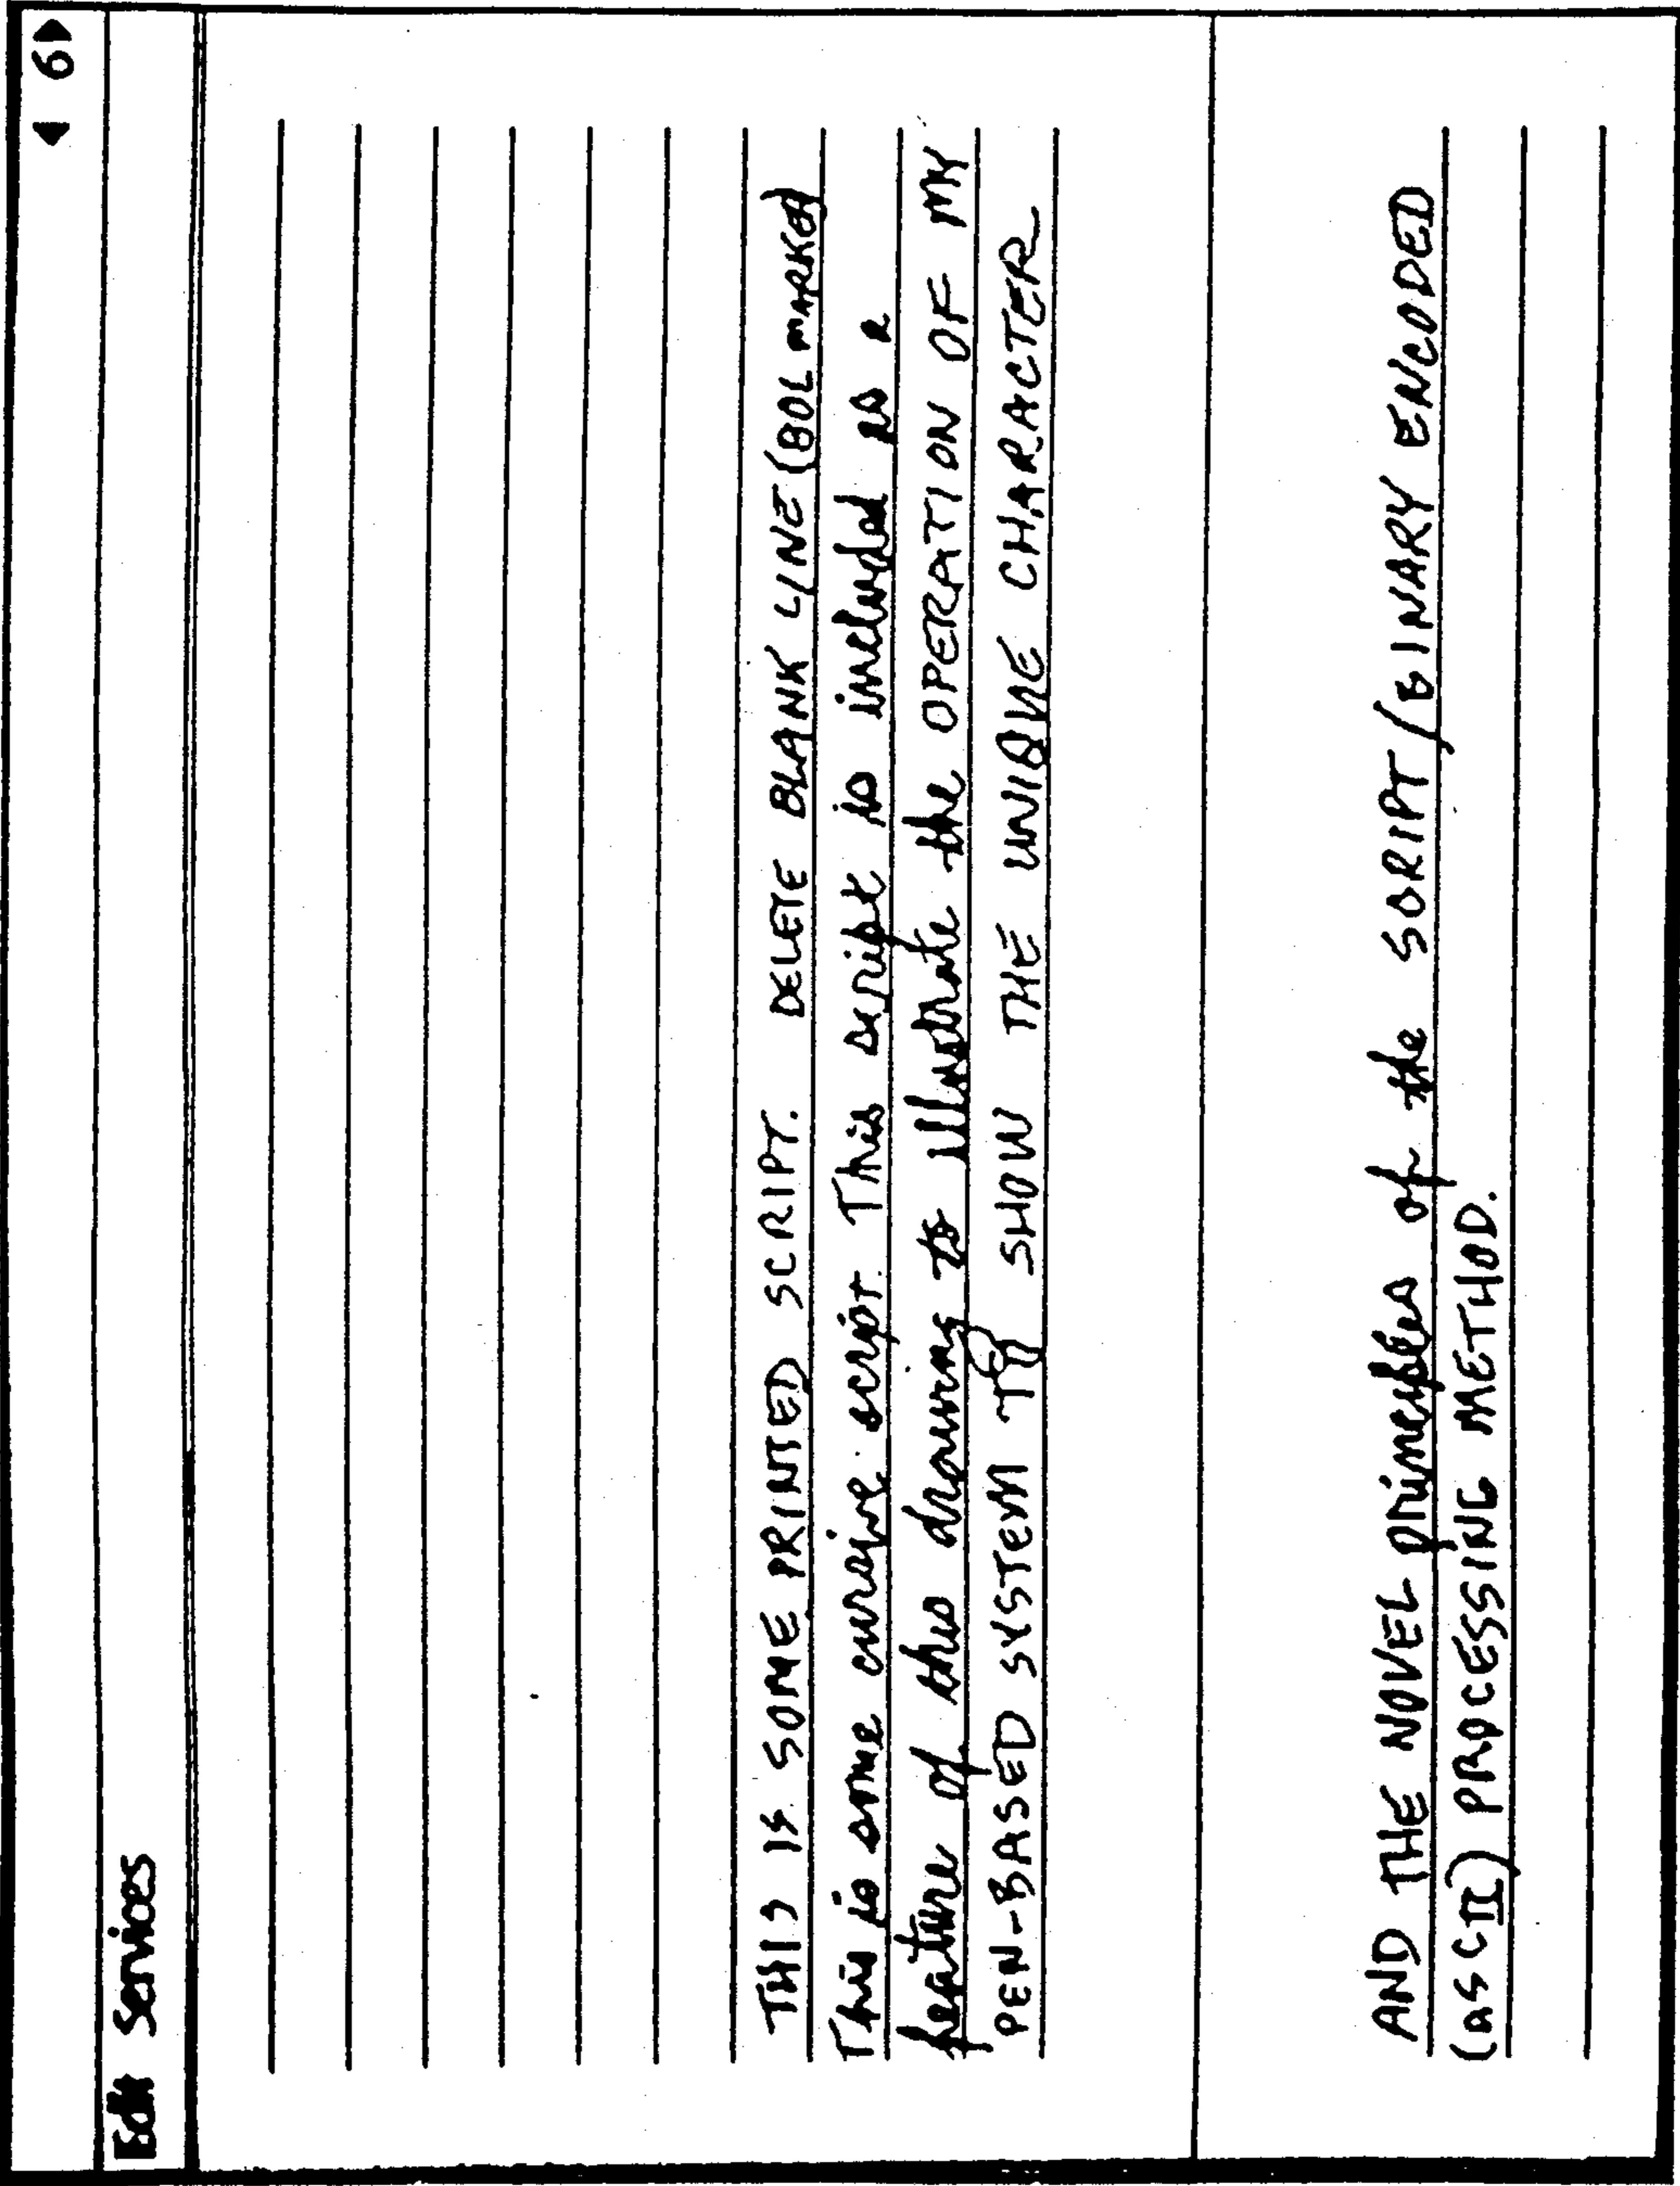 ◀ 6▶
Edit Services
THIS IS SOME PRINTED SCRIPT. DELETE BLANK LINE (BOL MARKED)
This is some cursive script. This script is included as a
feature of this drawing to illustrate the OPERATION OF MY
PEN-BASED SYSTEM TO SHOW THE UNIQUE CHARACTER
AND THE NOVEL principles of the SCRIPT/BINARY ENCODED
(ASCII) PROCESSING METHOD.